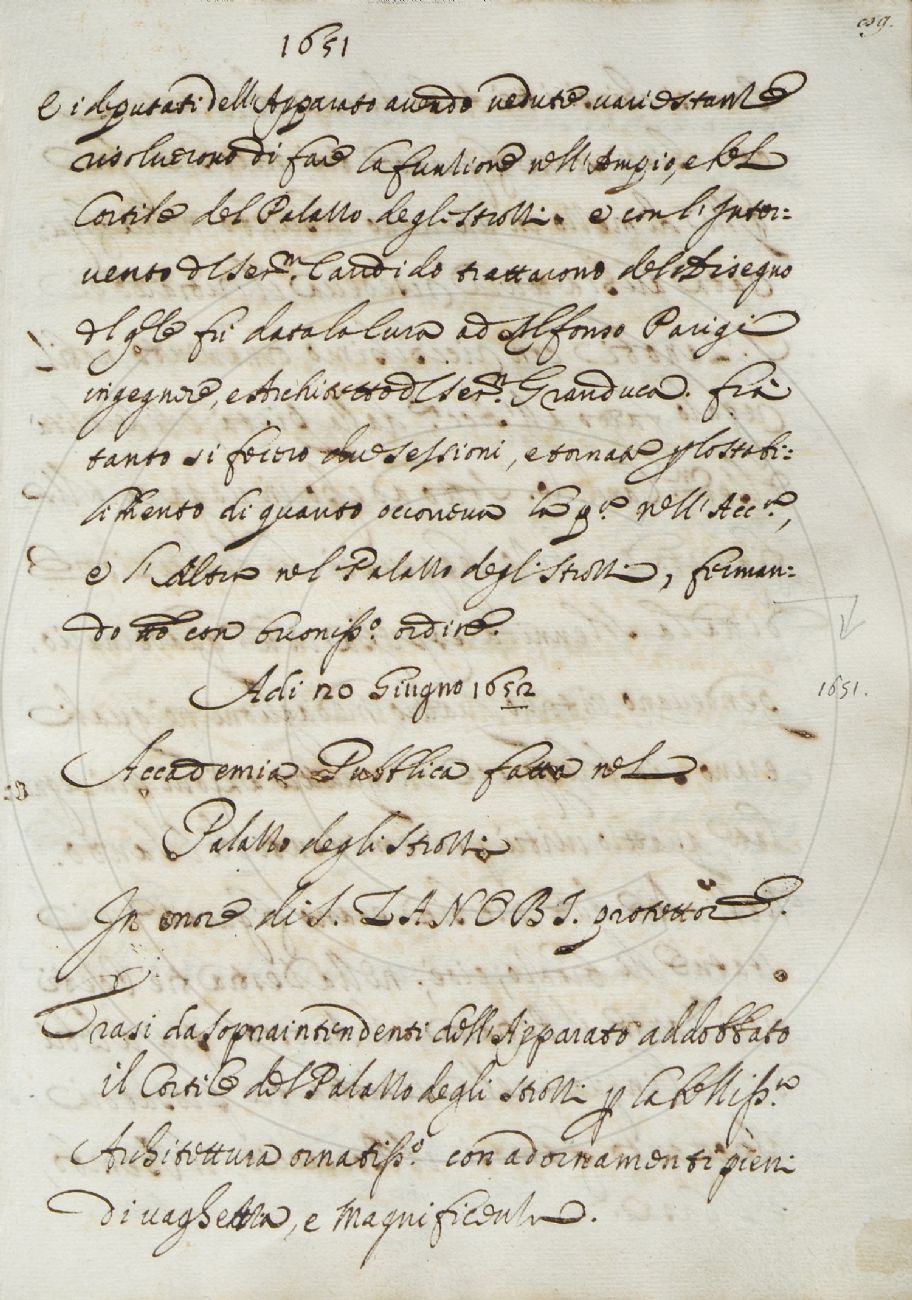 1651
E i deputati dell'Apparato avendo vedute varie stanze
risolverono di fare la funzione nell'Ampio, e bel
Cortile del Palazzo degli Strozzi. e con l'Inter:
vento del Ser.mo Candido trattarono del Disegno
del q.le fù data la Cura ad Alfonso Parigi
ingegnere, e Architetto del Ser.mo Granduca. frà
tanto si fecero due sessioni, e tornate p lo stabi:
limento di quanto occorreva la p.a nell'Acc.a,
e l'Altra nel Palazzo degli Strozzi, ferman:
do tto con buoniss.o ordine.
Adi 20 Giugno 1652
1651.
Accademia Pubblica fatta nel
Palazzo degli Strozzi
In onore di S. ZANOBI. protettore.
Erasi da sopraintendenti dell'Apparato addobbato
il Cortile del Palazzo degli Strozzi p la belliss.a
Architettura ornatiss.o con adornamenti pieni
di vaghezza, e Magnificenza.